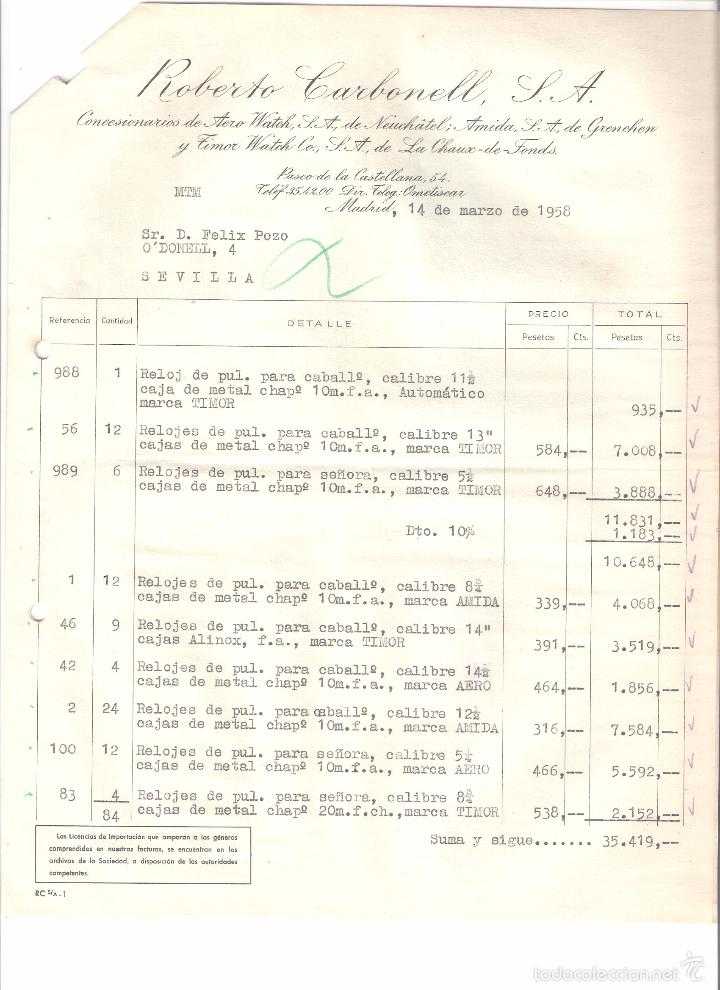 Roberto Carbonell, S.A.
Concesionarios de Aero Watch, S.A, de Neuchâtel; Amida, S.A, de Grenchen
y Timor Watch Co, S.A, de La Chaux-de-Fonds.
Paseo de la Castellana, 54.
MTM Teléf. 35.42.00 Dir. Teleg.: Ometiscar
Madrid, 14 de marzo de 1958
Sr. D. Felix Pozo
O'DONELL, 4
SEVILLA
Referencia Cantidad DETALLE PRECIO TOTAL
Pesetas Cts. Pesetas Cts.
988 1 Reloj de pul. para caballº, calibre 11½
caja de metal chapº 10m.f.a., Automático
marca TIMOR 935,--
56 12 Relojes de pul. para caballº, calibre 13"
cajas de metal chapº 10m.f.a., marca TIMOR 584,-- 7.008,--
989 6 Relojes de pul. para señora, calibre 5½
cajas de metal chapº 10m.f.a., marca TIMOR 648,-- 3.888,--
11.831,--
Dto. 10% 1.183,--
10.648,--
1 12 Relojes de pul. para caballº, calibre 8¾
cajas de metal chapº 10m.f.a., marca AMIDA 339,-- 4.068,--
46 9 Relojes de pul. para caballº, calibre 14"
cajas Alinox, f.a., marca TIMOR 391,-- 3.519,--
42 4 Relojes de pul. para caballº, calibre 14½
cajas de metal chapº 10m.f.a., marca AERO 464,-- 1.856,--
2 24 Relojes de pul. para caballº, calibre 12½
cajas de metal chapº 10m.f.a., marca AMIDA 316,-- 7.584,--
100 12 Relojes de pul. para señora, calibre 5¼
cajas de metal chapº 10m.f.a., marca AERO 466,-- 5.592,--
83 4 Relojes de pul. para señora, calibre 8¾
84 cajas de metal chapº 20m.f.ch., marca TIMOR 538,-- 2.152,--
Suma y sigue....... 35.419,--
Las Licencias de Importación que amparan a los géneros
comprendidos en nuestras facturas, se encuentran en los
archivos de la Sociedad, a disposición de las autoridades
competentes.
RC S/A - 1
todocoleccion.net